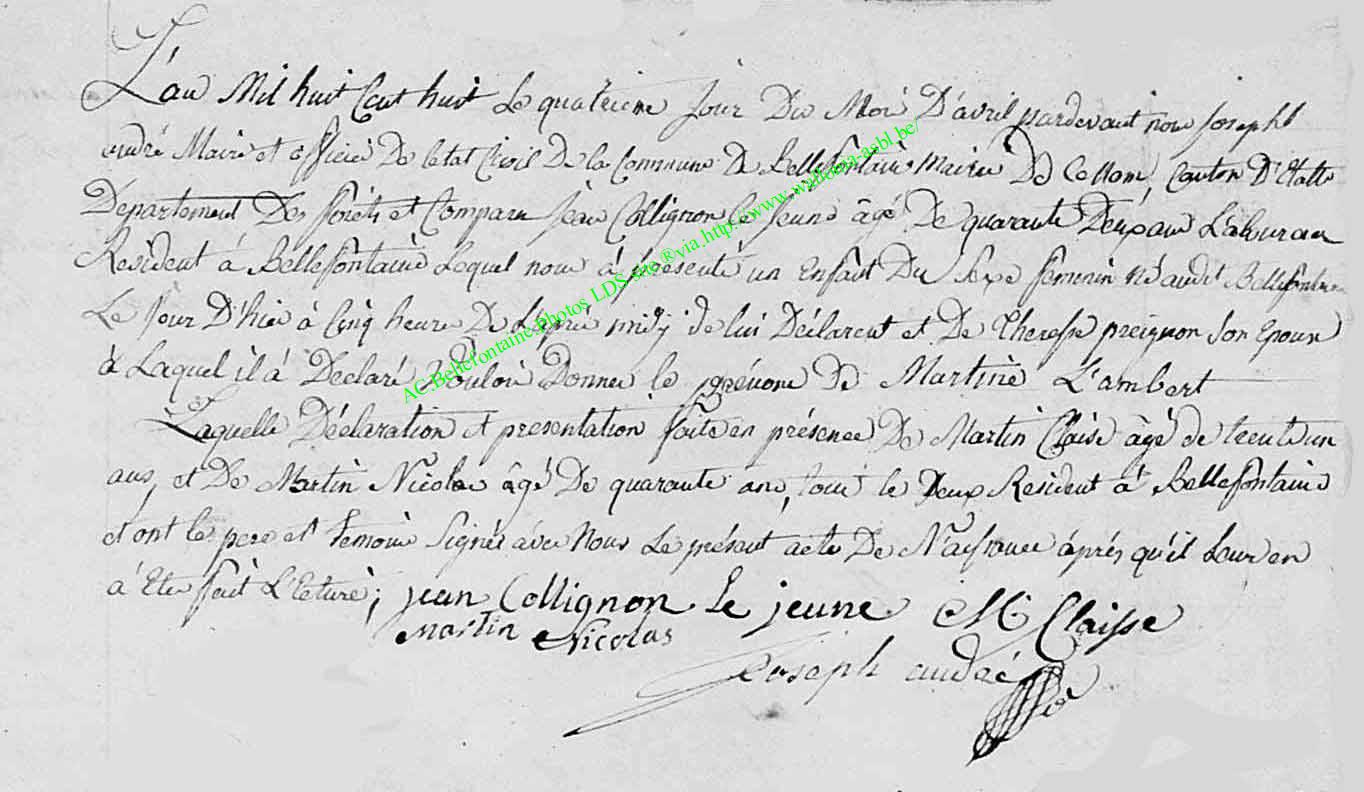 L'an Mil huit Cent huit le quatrieme jour Du Moi D'avril pardevant nous Joseph
andré Maire et officie De letat Civil De la Commune De Bellefontaine Mairie De Ce Nom, Canton D'Etalle
Departement Des forêts et Comparu jean Collignon le Jeune âgé De quarante Deux ans Laboureur
Resident á Bellefontaine Lequel nous á présenté un Enfant Du Sexe féminin né audit Bellefontaine
Le jour D'hier á Cinq heure De L'aprè midy de lui Déclarent et De Theresse preignon Son Epouse
á Laquel il á Declaré Vouloir Donner le prénom de Martine L'ambert
Laquelle Déclaration et presentation faite en présence De Martin Claise âgé de trente un
ans, et De Martin Nicolas âgé De quarante ans, tous le Deux Resident á Bellefontaine
et ont le pere et temoin Signés avec Nous Le présent acte De Naissance áprés qu'il Leur en
á Eté fait L'Eture; jean Collignon Le jeune M Claisse
Martin Nicolas
Joseph andré
AC Bellefontaine.Photos LDS-site ®via.http://www.wallonia-asbl.be/